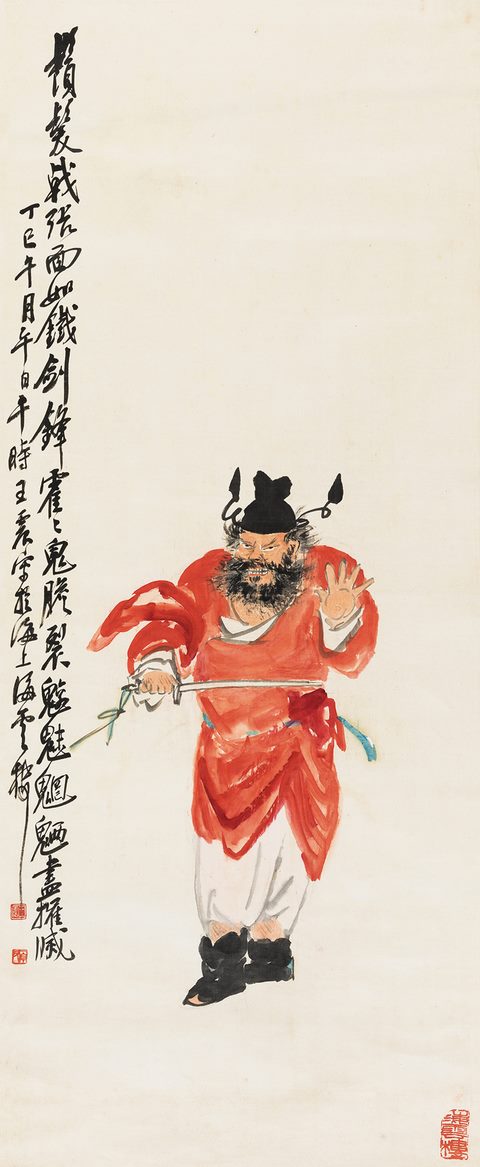 鬚髮戟張面如鐵劍鋒霍〻鬼膽裂魑魅魍魎盡摧滅
丁巳午月午日午時王震寫於海上海雲樓